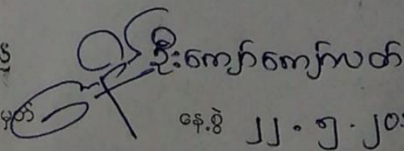 ဦးကျော်ကျော်လတ်
နေ့စွဲ ၂၂.၅.၂၀